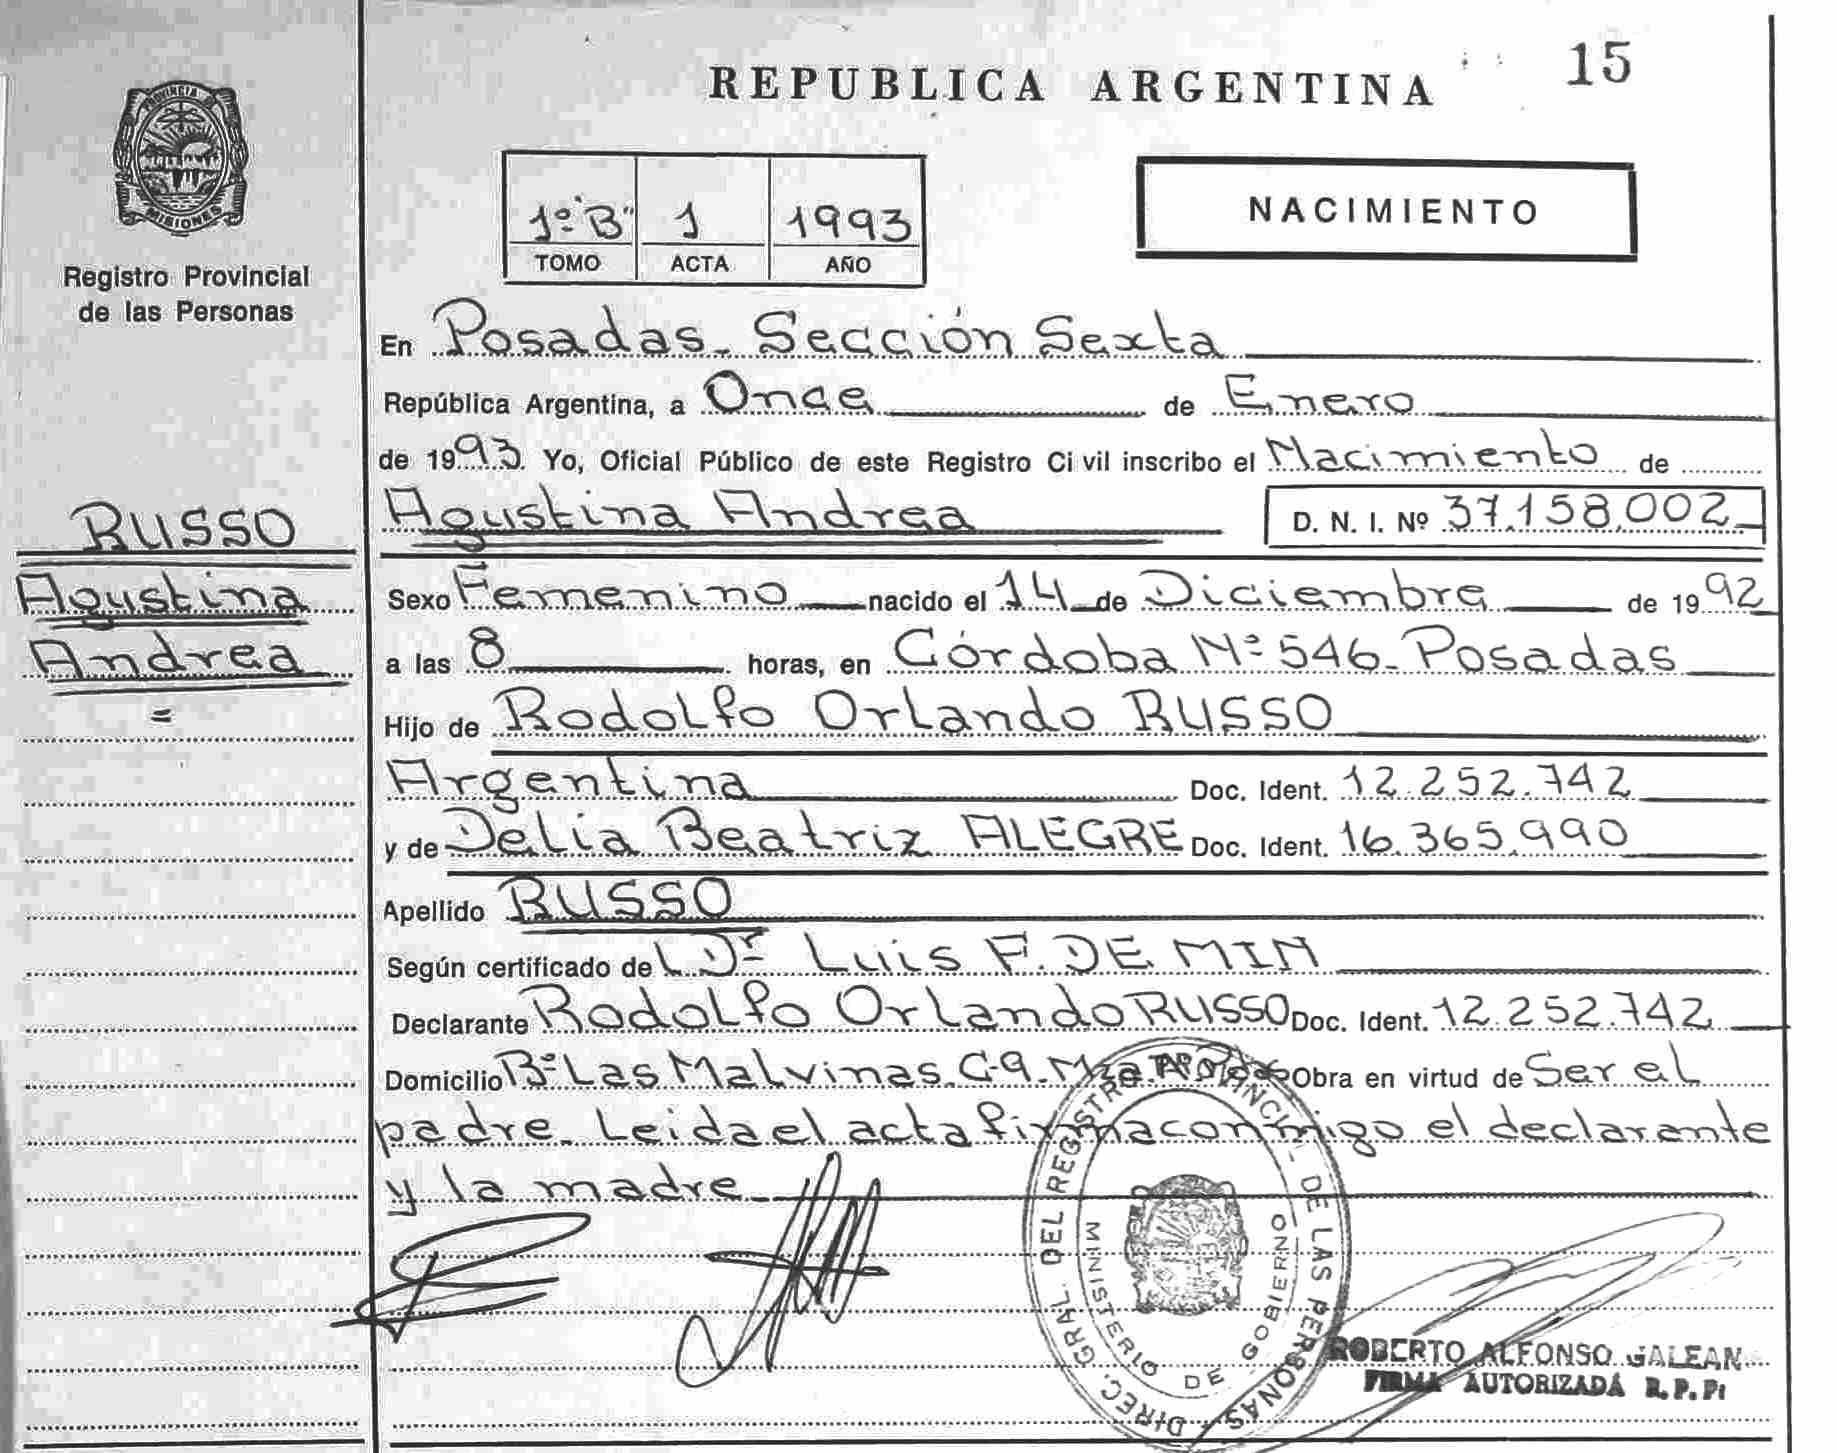 15
REPUBLICA ARGENTINA
PROVINCIA D
MISIONES
Registro Provincial
de las Personas
1º "B" 1 1993
TOMO ACTA AÑO
NACIMIENTO
En Posadas - Sección Sexta
República Argentina, a Once de Enero
de 1993. Yo, Oficial Público de este Registro Civil inscribo el Nacimiento de
RUSSO
Agustina
Andrea
=
Agustina Andrea D. N. I. Nº 37.158.002
Sexo Femenino nacido el 14 de Diciembre de 1992
a las 8 horas, en Córdoba Nº 546 - Posadas
Hijo de Rodolfo Orlando RUSSO
Argentina Doc. Ident. 12.252.742
y de Delia Beatriz ALEGRE Doc. Ident. 16.365.990
Apellido RUSSO
Según certificado del Dr Luis F. DE MIN
Declarante Rodolfo Orlando RUSSO Doc. Ident. 12.252.742
Domicilio Bº Las Malvinas. C-9. Mza Obra en virtud de Ser el
padre. Leida el acta firma conmigo el declarante
y la madre
DIREC. GRAL. DEL REGISTRO PROVINCIAL DE LAS PERSONAS
MINISTERIO DE GOBIERNO
ROBERTO ALFONSO GALEAN
FIRMA AUTORIZADA R.P.P.